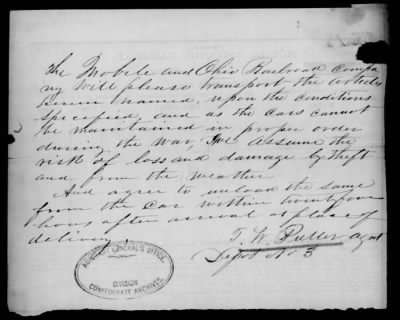 The Mobile and Ohio Railroad Compa
ny Will please transport the articles
herein named, upon the conditions
specified, and as the cars cannot
be maintained in proper order
during the war, I we assume the
risk of loss and damage by theft
and from the weather
And agree to unload the same
from the car within twenty four
hours after arrival at place of
delivery
T. W. Puller agent
Depot No 3
ADJUTANT GENERAL'S OFFICE,
DIVISION
CONFEDERATE ARCHIVES.